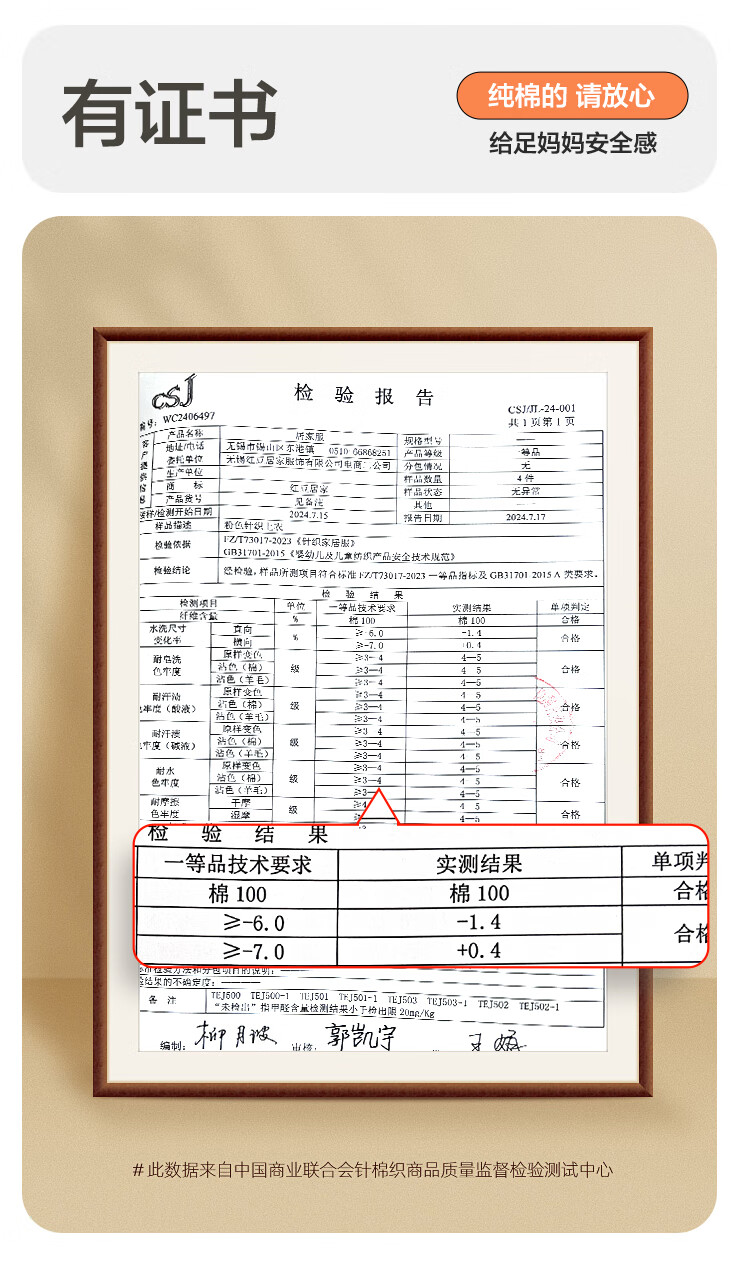 有证书
纯棉的 请放心
给足妈妈安全感
CSJ
检 验 报 告
编号: WC2406497
CSJ/JL-24-001
共 1 页第 1 页
产品名称 居家服 规格型号
地址/电话 无锡市锡山区东港镇 0510-66868251 产品等级 一等品
委托单位 无锡红豆居家服饰有限公司电商分公司 分包情况 无
生产单位 样品数量 4 件
商 标 红豆居家 样品状态 无异常
产品货号 见备注 其他
检测开始日期 2024.7.15 报告日期 2024.7.17
样品描述 粉色针织上衣
检验依据 FZ/T73017-2023《针织家居服》
GB31701-2015《婴幼儿及儿童纺织产品安全技术规范》
检验结论 经检验,样品所测项目符合标准 FZ/T73017-2023 一等品指标及 GB31701-2015 A 类要求。
检 验 结 果
检测项目 单位 一等品技术要求 实测结果 单项判定
纤维含量 % 棉 100 棉 100 合格
水洗尺寸变化率 直向 % ≥-6.0 -1.4 合格
横向 ≥-7.0 +0.4
耐皂洗色牢度 原样变色 级 ≥3—4 4—5 合格
沾色(棉) ≥3—4 4—5
沾色(羊毛) ≥3—4 4—5
耐汗渍色牢度(酸液) 原样变色 级 ≥3—4 4—5 合格
沾色(棉) ≥3—4 4—5
沾色(羊毛) ≥3—4 4—5
耐汗渍色牢度(碱液) 原样变色 级 ≥3—4 4—5 合格
沾色(棉) ≥3—4 4—5
沾色(羊毛) ≥3—4 4—5
耐水色牢度 原样变色 级 ≥3—4 4—5 合格
沾色(棉) ≥3—4 4—5
沾色(羊毛) ≥3—4 4—5
耐摩擦色牢度 干摩 级 4—5 合格
湿摩 4—5
检 验 结 果
一等品技术要求 实测结果 单项判
棉 100 棉 100 合格
≥-6.0 -1.4 合格
≥-7.0 +0.4
检验方法和分包项目的说明:
结果的不确定度:
备 注 TEJ500 TEJ500-1 TEJ501 TEJ501-1 TEJ503 TEJ503-1 TEJ502 TEJ502-1
“未检出”指甲醛含量检测结果小于检出限 20mg/Kg
编制: 审核: 郭凯宇
#此数据来自中国商业联合会针棉织商品质量监督检验测试中心